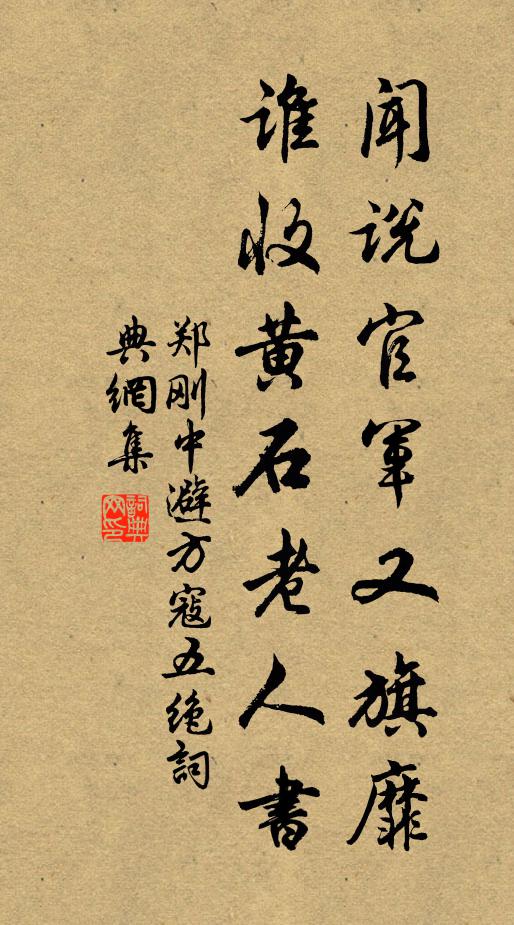 闻说官军又旗靡
谁收黄石老人书
郑刚中避方寇五绝词
典網集
詞典网印